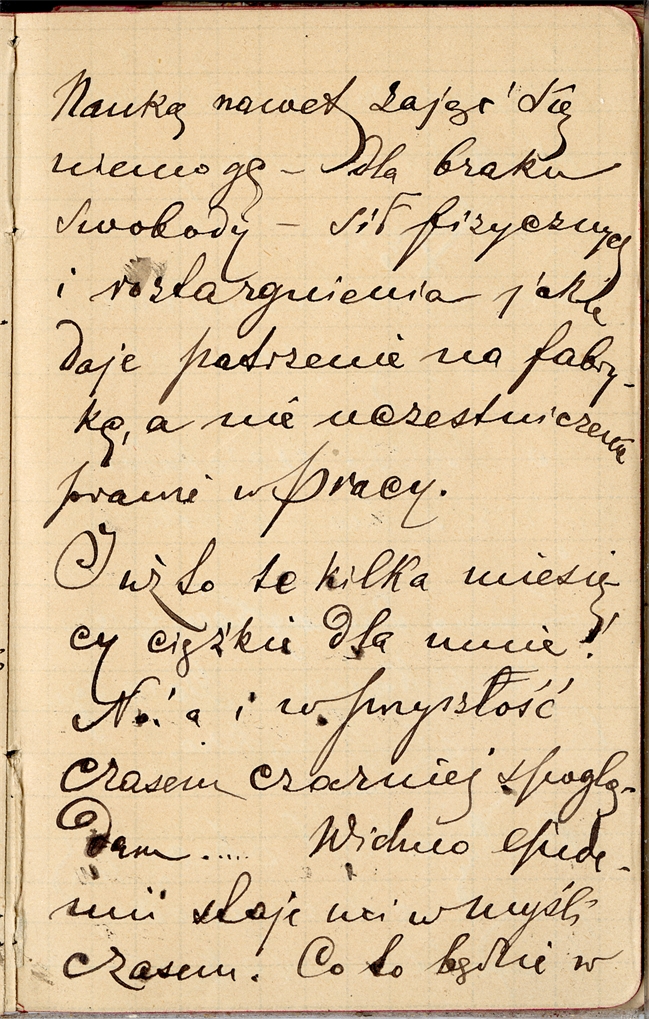 Nauką nawet zająć się
niemogę – dla braku
swobody – sił fizycznych
i roztargnienia jakie
daje patrzenie na fabry-
kę, a nie uczestniczenie
prawie w pracy.
I wżto te kilka miesię
cy ciężkie dla mnie!
No! a i w przyszłość
czasem czarniej spoglą-
dam .... Widmo epide-
mii staje mi w myśli
czasem. Co to będzie w